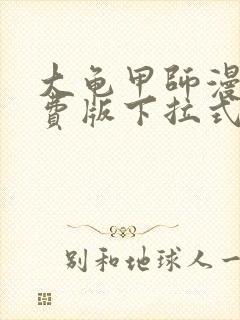 大龟甲師漫
费版下拉式
别和地球人一